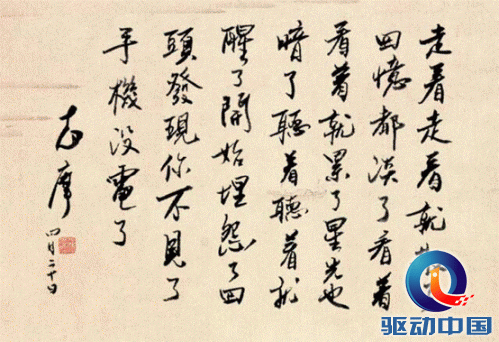 走着走着就
回憶都淡了看着
看着就累了星光也
暗了聽着聽着就
醒了開始埋怨了回
頭發現你不見了
手機没電了
志摩
四月二十日
驱动中国